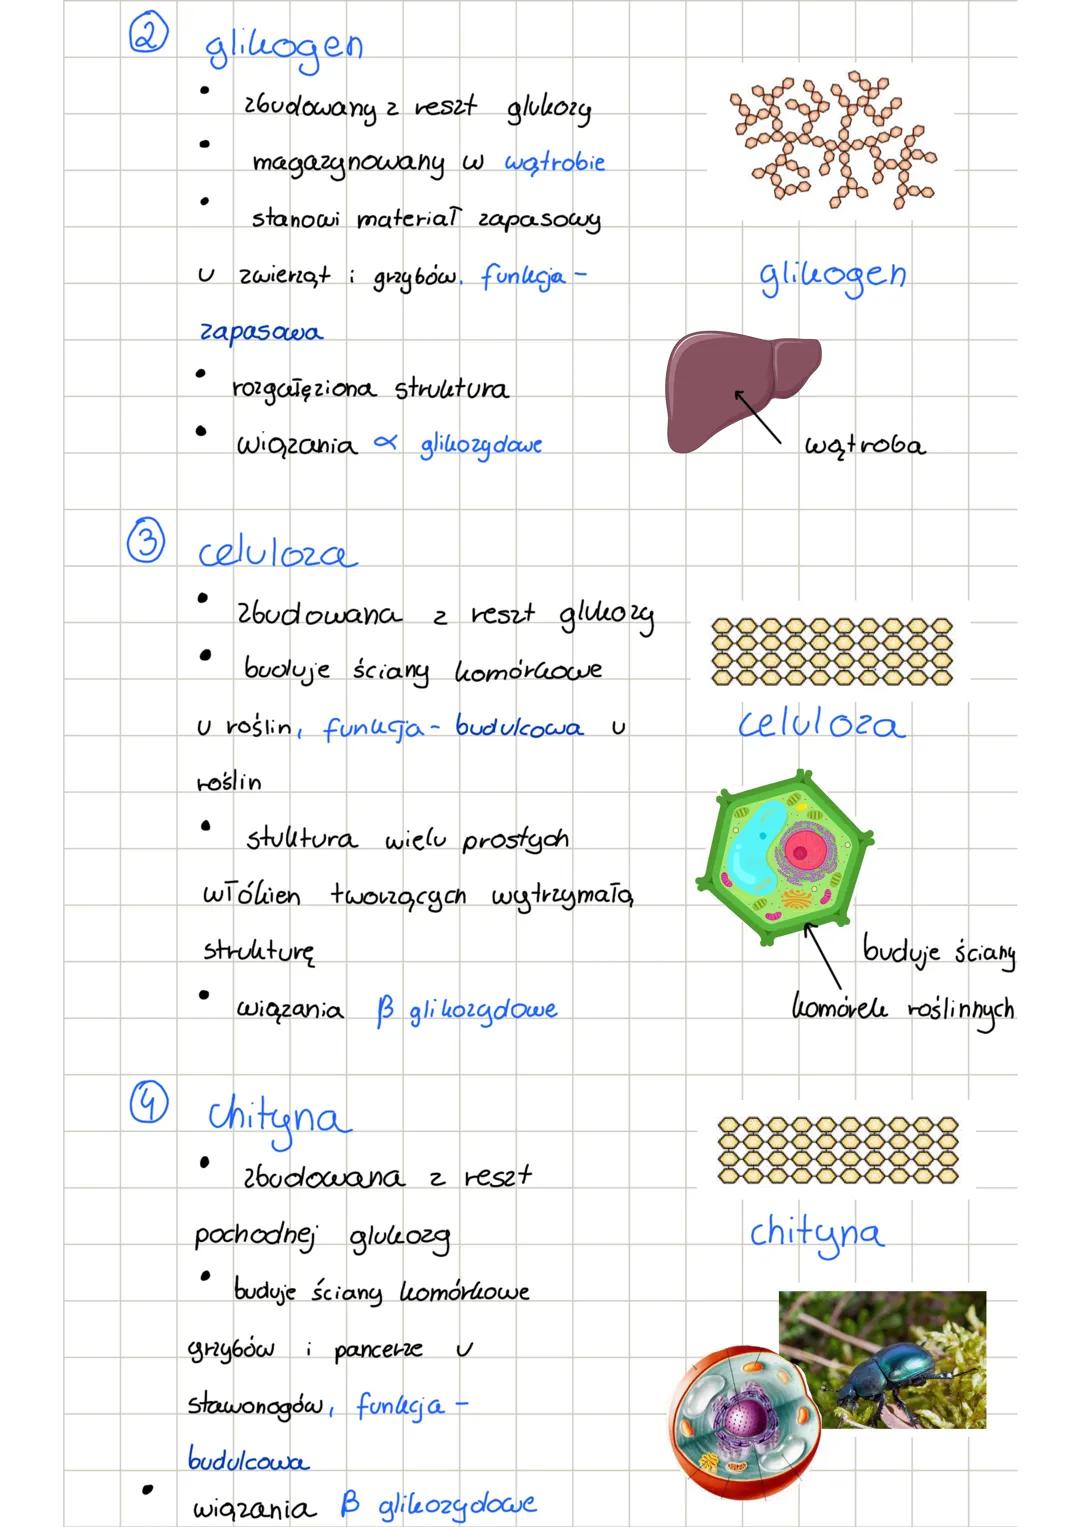 2 glikogen
• zbudowany z reszt glukozy
• magazynowany w wątrobie
• stanowi materiał zapasowy
u zwierząt i grzybów, funkcja -
zapasowa
• rozgałęziona struktura
• wiązania α glikozydowe
glikogen
wątroba
3 celuloza
• zbudowana z reszt glukozy
• buduje ściany komórkowe
u roślin, funkcja - budulcowa u
roślin
• stuktura wielu prostych
włókien tworzących wytrzymałą
strukturę
• wiązania β glikozydowe
celuloza
buduje ściany
komórek roślinnych
4 chityna
• zbudowana z reszt
pochodnej glukozy
• buduje ściany komórkowe
grzybów i pancerze u
stawonogów, funkcja -
budulcowa
• wiązania β glikozydowe
chityna